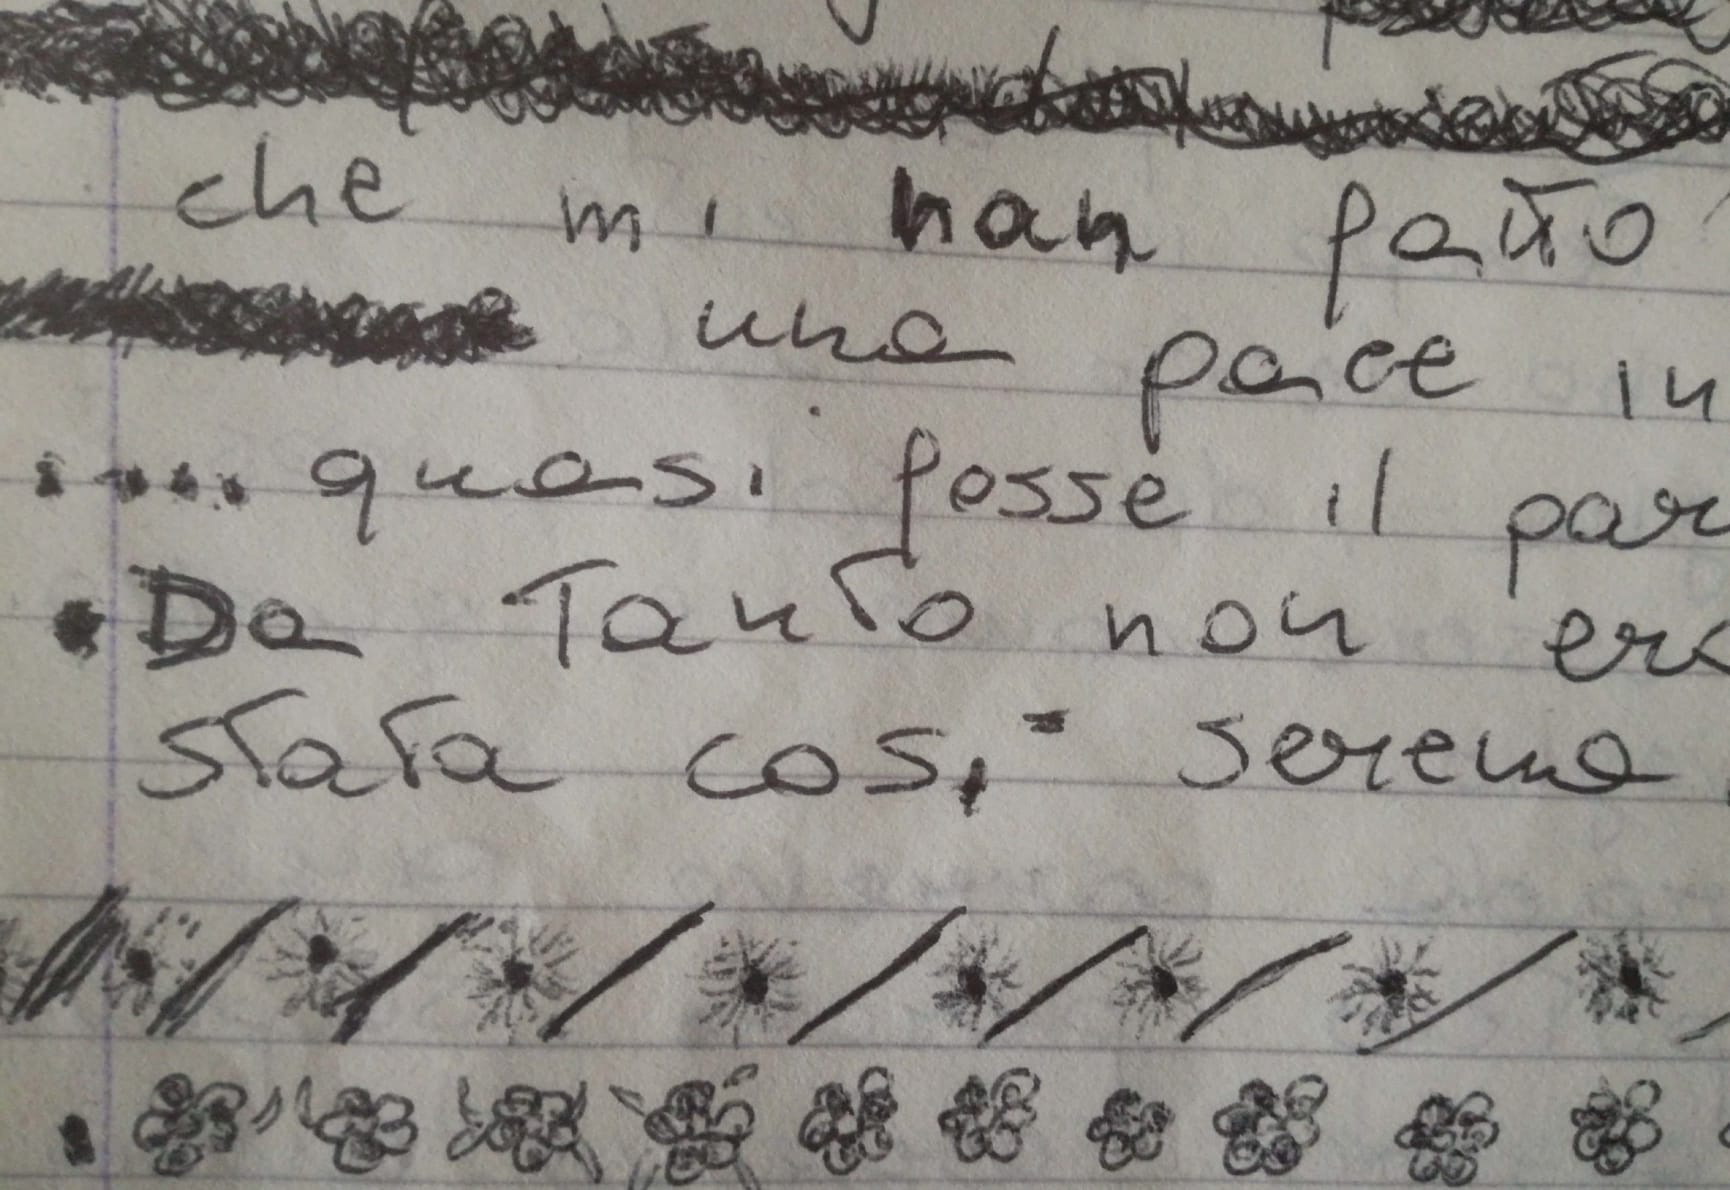 che mi han fatto
una pace in
.... quasi fosse il par
• Da Tanto non era
stata così serena